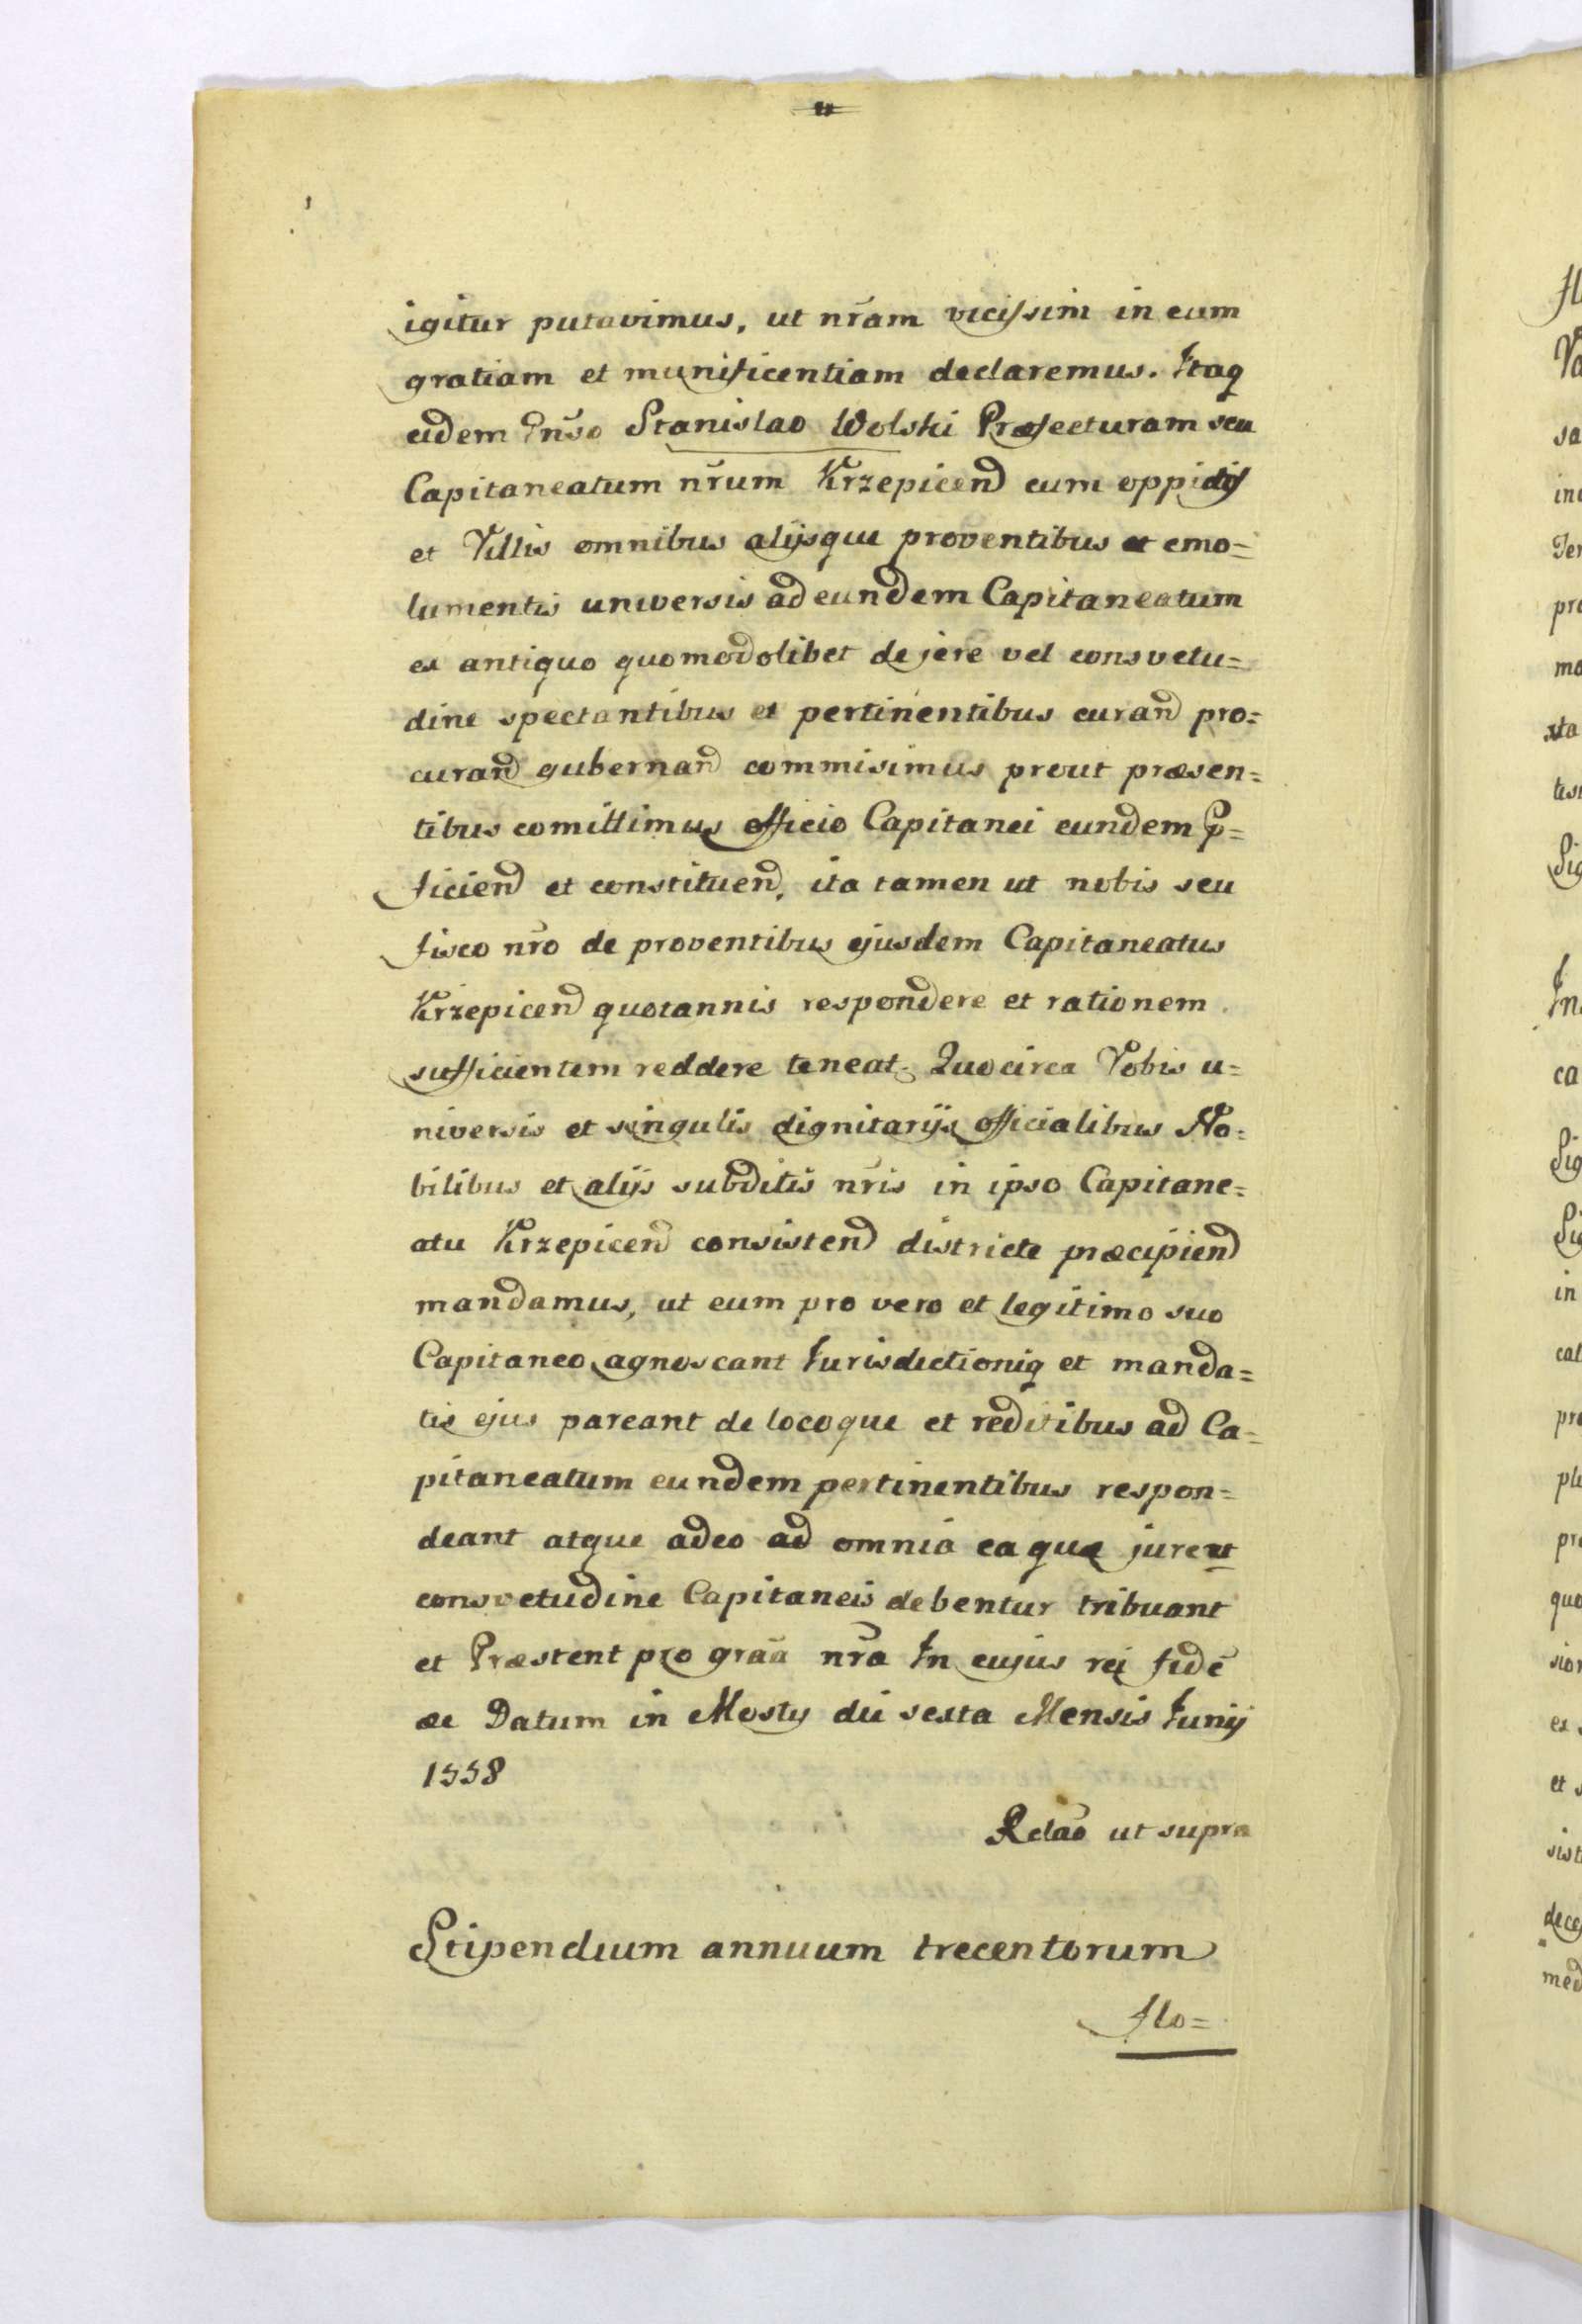 igitur putavimus, ut nr̃am vicissim in eum
gratiam et munificentiam declaremus. Itaq
eidem Gn̄so Stanislao Wolski Præfecturam seu
Capitaneatum nr̃um Krzepicen̄ cum oppidis
et Villis omnibus alijsque proventibus et emo=
lumentis universis ad eundem Capitaneatum
ex antiquo quomodolibet de jere vel consvetu=
dine spectantibus et pertinentibus curand̄ pro=
curand̄ gubernand̄ commisimus prout præsen=
tibus comittimus officio Capitanei eundem p=
ficiend̄ et constituend̄, ita tamen ut nobis seu
fisco nr̃o de proventibus ejusdem Capitaneatus
Krzepicen̄ quotannis respondere et rationem
sufficientem reddere teneat. Quocirca Vobis u=
niversis et singulis dignitarijs officialibus No=
bilibus et alijs subditis nr̃is in ipso Capitane=
atu Krzepicen̄ consisten̄ districte præcipiend̄
mandamus, ut eum pro vero et legitimo suo
Capitaneo agnoscant Jurisdictioniq et manda=
tis ejus pareant de locoque et reditibus ad Ca=
pitaneatum eundem pertinentibus respon=
deant atque adeo ad omnia ea quæ jure et
consvetudine Capitaneis debentur tribuant
et Præstent pro graã nr̃a In cujus rei fidē
ac Datum in Mosty die sexta Mensis Junij
1558
Relaõ ut supra
Stipendium annuum trecentorum
flo=